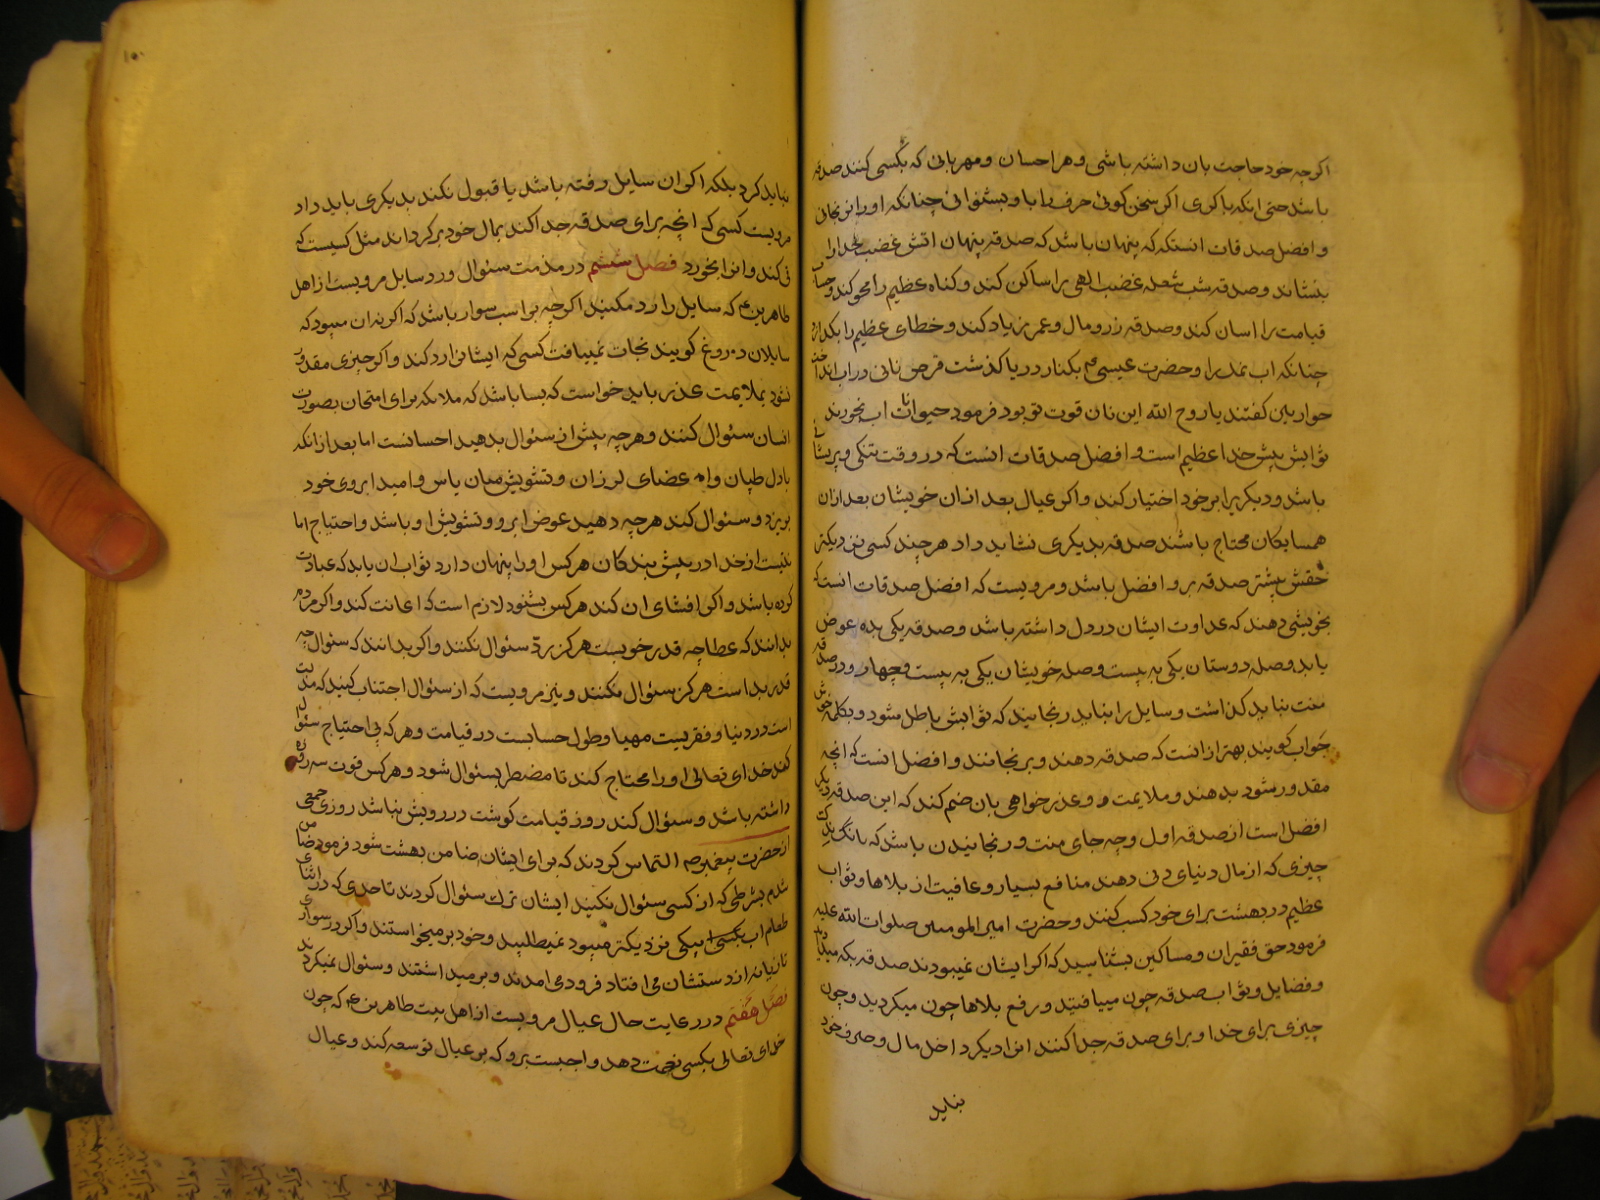 اکرچه خود حاجت بان داشته باشی و هر احسان و مهربانی که بکسی کنند صدقه
باشد حتی اینکه با کری اکر سخن کوئی حرف را باو بشنوانی چنانکه او را نرنجانی
و افضل صدقات انستکه که پنهان باشد که صدقه پنهان اتش غضب خدا را
بنشاند و صدقه شب شعله غضب الهی را ساکن کند و کناه عظیم را محو کند و حساب
قیامت را اسان کند و صدقه زر و مال و عمر زیاد کند و خطای عظیم را بکدازد
چنانکه اب نمک را و حضرت عیسی ع م بکنار دریا کذشت قرص نانی در اب انداخت
حواریین کفتند یا روح الله این نان قوت تو بود فرمود حیوانات اب بخورند
ثوابش پیش خدا عظیم است و افضل صدقات انست که در وقت تنکی و پریشانی
باشد و دیکریرا بر خود اختیار کند و اکر عیال بعد ازان خویشان بعد ازان
همسایکان محتاج باشند صدقه بدیکری نشاید داد هرچند کسی نزدیکتر
حقش بیشتر صدقه برو افضل باشد و مرویست که افضل صدقات انست که
بخویشی دهند که عداوت ایشان در دل داشته باشد و صدقه یکی بده عوض
یابد و صله دوستان یکی به بیست و صله خویشان یکی به بیست و چهار و در صدقه
منت نباید کذاشت و سایل را نباید رنجانید که ثوابش باطل مشود و بکلمه خوش
جواب کویند بهتر ازانست که صدقه دهند و برنجانند و افضل انست که انچه
مقدور شود بدهند و ملایمت و عذر خواهی بان ضم کند که این صدقه دیکر
افضل است از صدقه اول و چه جای منت و رنجانیدن باشد که باندک
چیزی که از مال دنیای دنی دهند منافع بسیار و عافیت از بلاها و ثواب
عظیم در بهشت برای خود کسب کنند و حضرت امیر المومنین صلوات الله علیه
فرمود حق فقیران و مساکین بشناسید که اکر ایشان نمیبودند صدقه بکه میدادید
و فضایل و ثواب صدقه چون مییافتید و رفع بلاها چون میکردید و چون
چیزی برای خدا و برای صدقه جدا کنند انرا دیکر داخل مال و صرف خود
نباید
نباید کرد بلکه اکر ان سایل رفته باشد یا قبول نکند بدیکری باید داد
مرویست کسی که انچه برای صدقه جدا کند بمال خود برکرداند مثل کسیست که
قی کند و انرا بخورد فصل ششم در مذمت سئوال و رد سایل مرویست از اهل
طاهرین ع که سایل را رد مکنید اکرچه بر اسب سوار باشد که اکر نه ان میبود که
سایلان دروغ کویند نجات نمییافت کسی که ایشانرا رد کند و اکر چیزی مقدور
نشود بملایمت عذر باید خواست که بسا باشد که ملائکه برای امتحان بصورت
انسان سئوال کنند و هرچه پیش از سئوال بدهید احسانست اما بعد ازانکه
بادل طپان و اعضای لرزان و تشویش میان یاس و امید ابروی خود
بریزد و سئوال کند هرچه دهید عوض ابرو و تشویش او باشد و احتیاج اما
نتیست از خدا در پیش بندکان هرکس او را پنهان دارد ثواب ان یابد که عبادت
کرده باشد و اکر افشای ان کند هرکس بشنود لازم است که اعانت کند و اکر مردم
بدانند که عطا چه قدر خوبست هرکز رد سئوال نکنند و اکر بدانند که سئوال چه
قدر بد است هرکز سئوال نکنند و نیز مرویست که از سئوال اجتناب کنید که مذلت
است در دنیا و فقریست مهیا و طول حسابست در قیامت و هرکه بی احتیاج سئوال
کند خدای تعالی او را محتاج کند تا مضطر بسئوال شود و هرکس قوت سه روزه
داشته باشد و سئوال کند روز قیامت کوشت در رویش نباشد روزی جمعی
از حضرت پیغمبر صم التماس کردند که برای ایشان ضامن بهشت شود فرمود ضامن
شدم بشرطی که از کسی سئوال نکنید ایشان ترک سئوال کردند تا حدی که در اثنای
طعام اب بکسی نزدیکتر میبود نمیطلبید و خود برمیخواستند و اکر در سواری
تازیانه از دستشان می افتاد فرود می امدند و برمیداشتند و سئوال نمیکردند
فصل هفتم در رعایت حال عیال مرویست از اهل بیت طاهرین ع که چون
خدای تعالی بکسی نعمت دهد واجبست برو که بر عیال توسعه کند و عیال